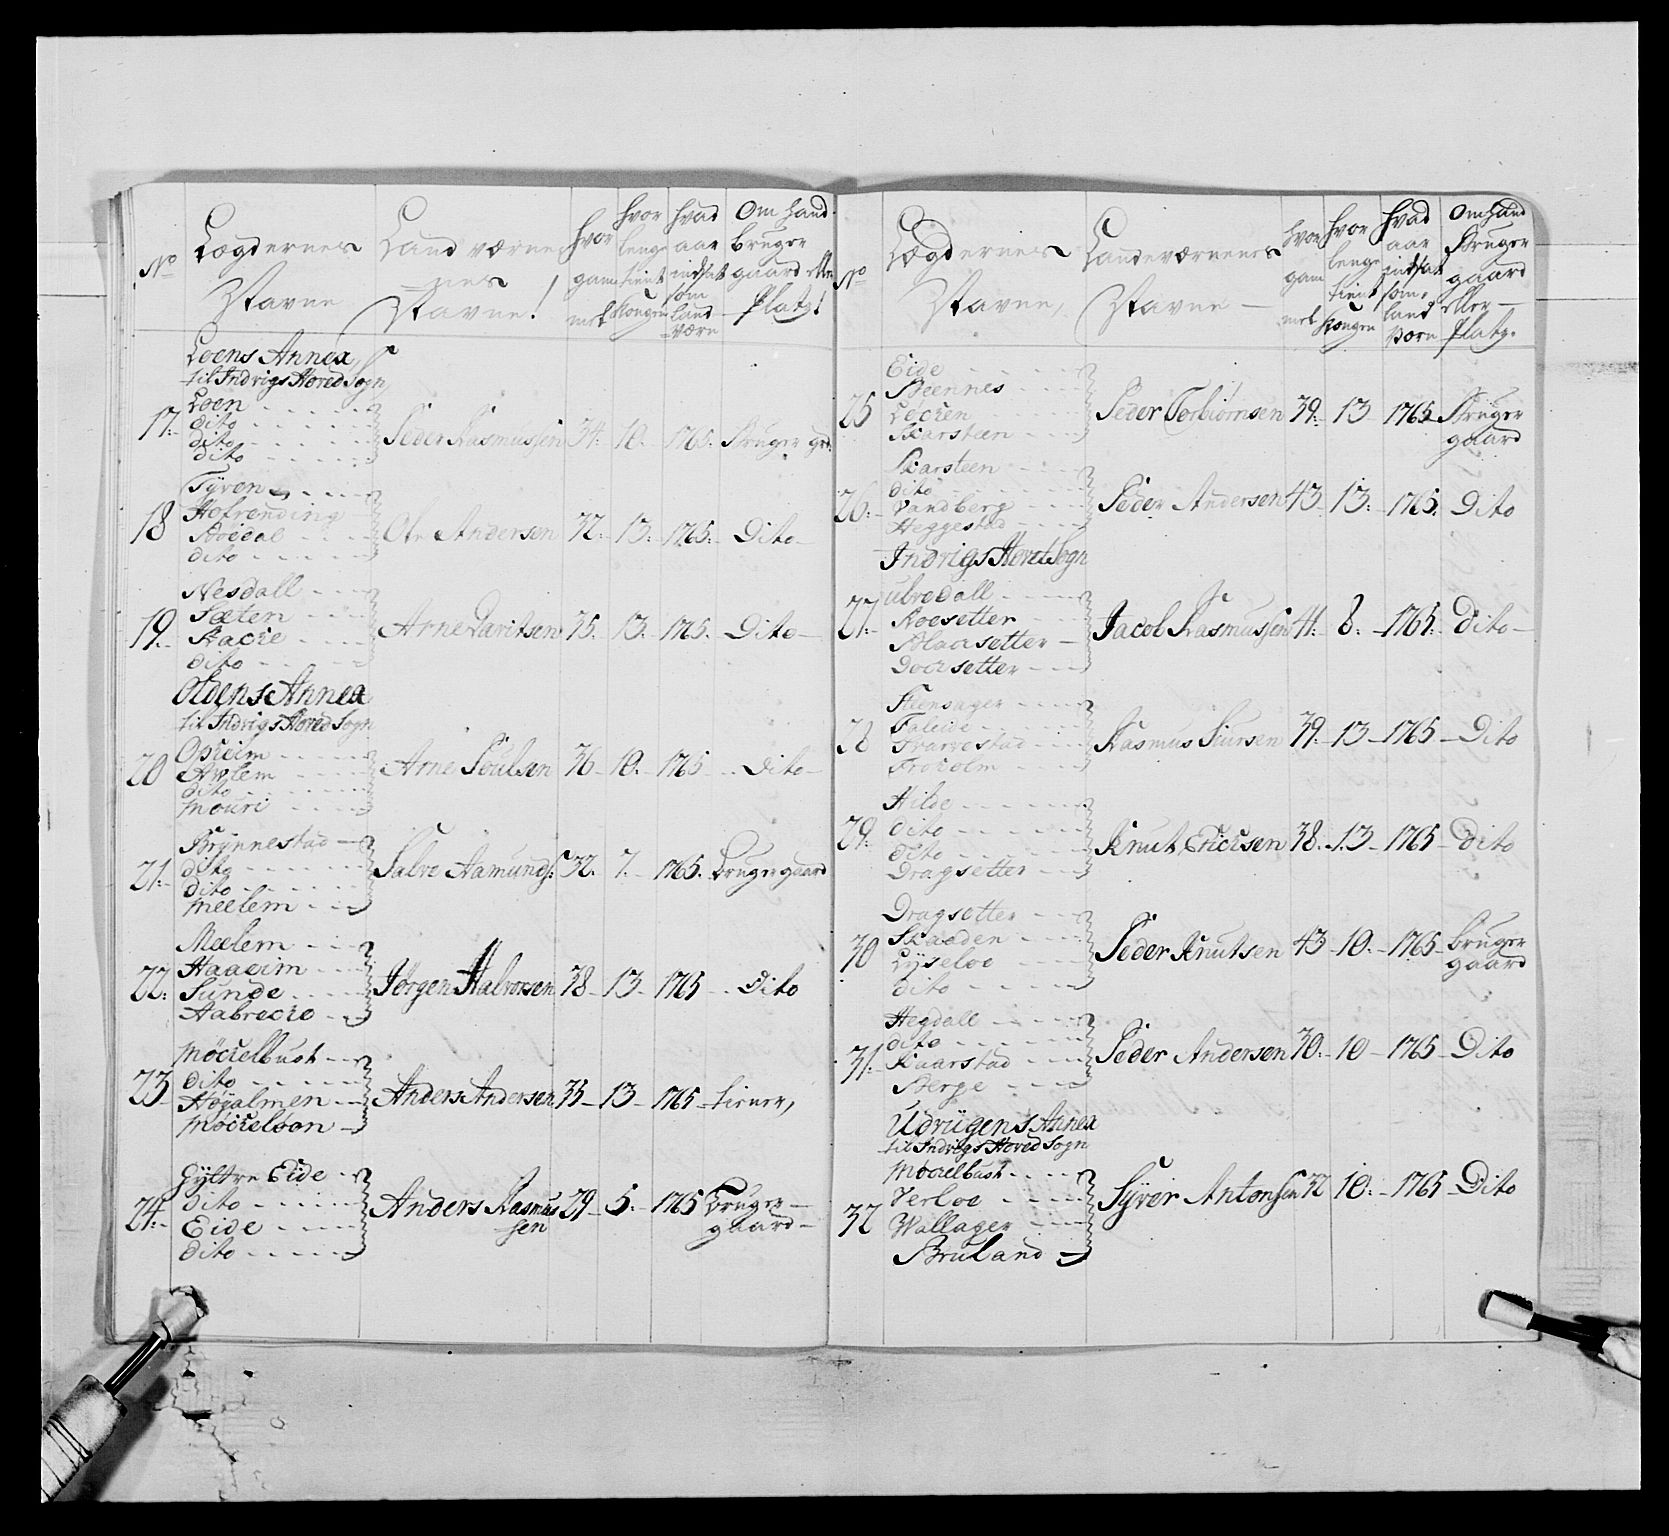 No
Lægdernes
Navne
Land værne
nes
Navne!
hvor
gam
mel
hvor
lenge
tient
Kongen
hvad
aar
indsat
som
land
værn
Om hand
bruger
gaard eller
Platz!
Loens Annex,
til Indvigs Hoved Sogn
17.
Loen
dito
dito
dito
Peder Rasmussen 34. 10. 1765. Bruger grd.
18
Tyven
Hofrending
Bødal
dito
Ole Andersen 32. 13. 1765. Dito
19.
Nesdall
Sæten
Aacre
dito
Arne Davitsen 35. 13. 1765. Dito
Oldens Annex
til Indvigs Hoved Sogn
20
Opheim
Avlem
dito
Mouri
Arne Poulsen 36 10. 1765 Dito
21.
Brynnestad
dito
dito
Meelem
Salve Aamunds: 32. 7. 1765. Bruger gaard
22.
Meelem
Haaeim
Sunde
Aabrecke
Jørgen Halvorsen 38 13 1765 Dito
23
Møckelbust
dito
Høyalmen
Møckeloen
Anders Andersen 33 13 1765 tiener,
24.
Gyttre Eide
dito
Eide
dito
Anders Rasmus
sen
29 5. 1765 Bruger
gaard
No
Lægdernes
Navne,
Landeværnenes
Navne
hvor
gam
mel
hvor
lenge
tient
Kongen
hvad
aar
indsat
som
land
værn
Om hand
Bruger
gaard
eller
Platz.
25
Eide
Steennes
Lecken
Skarsteen
Peder Torbiørnsen 39. 13 1765 Bruger
gaard
26.
Skarsteen
dito
Sandberg
Heggestad
Peder Andersen 43 13. 1765. Dito
Indvigs Hoved Sogn
27.
Ulvedall
Roesetter
Aolaasetter
Dochsetter
Jacob Rasmussen 41. 8. 1765. Dito
28
Steensager
Faleide
Tvarvestad
Froholm
Rasmus Siursen 39. 13 1765 Dito
29.
Hilde
dito
dito
Dragsetter
Knut Ericksen 38. 13 1765 Dito
30
Dragsetter
Skaaden
Lyseloe
dito
Peder Knutsen 43 10. 1765 bruger
gaard
31.
Hegdall
dito
Kaarstad
Berge
Peder Andersen 30. 10 1765 Dito
Udvigens Annex
til Indvigs Hoved Sogn
32
Møckelbust
Verloe
Wallager
Bruland
Syver Antonsen 32 10. 1765 Dito